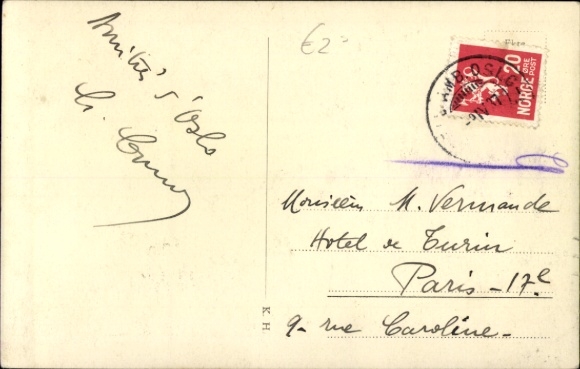 Amitiés d'Oslo
€2
20
ØRE
POST
NORGE
K. H.
Monsieur M. Vermande
Hotel de Turin
Paris-17e
9- rue Caroline-